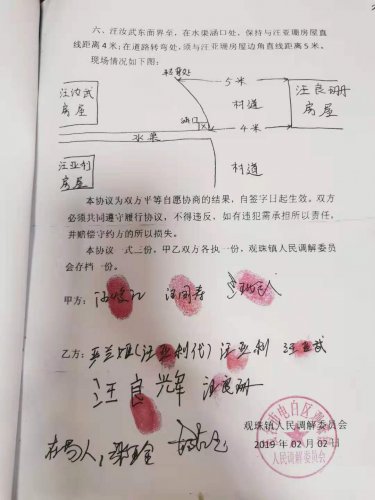 六、汪汝武东面界至，在水渠涵口处，保持与汪亚珊房屋直
线距离4米；在道路转弯处，须与汪亚珊房屋边角直线距离5米。
现场情况如下图：
转弯处
5米
汪汝武
房屋
村道
汪良珊
房屋
涵口
4米
水渠
汪亚利
房屋
村道
本协议为双方平等自愿协商的结果，自签字日起生效。双方
必须共同遵守履行协议，不得违反，如有违犯需承担所以责任，
并赔偿守约方的所以损失。
本协议一式三份，甲乙双方各执一份，观珠镇人民调解委员
会存档一份。
甲方：
乙方：
(汪亚利代) 汪亚利
汪良
汪良珊
在场人：
观珠镇人民调解委员会
2019年02月02日
电白区
人民调解委员会